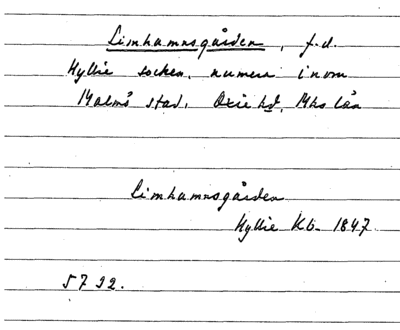 Limhamnsgården, f.d.
Hyllie socken, numera inom
Malmö stad, Oxie hd, Mhs län
Limhamnsgården
Hyllie Kb. 1847
5732.